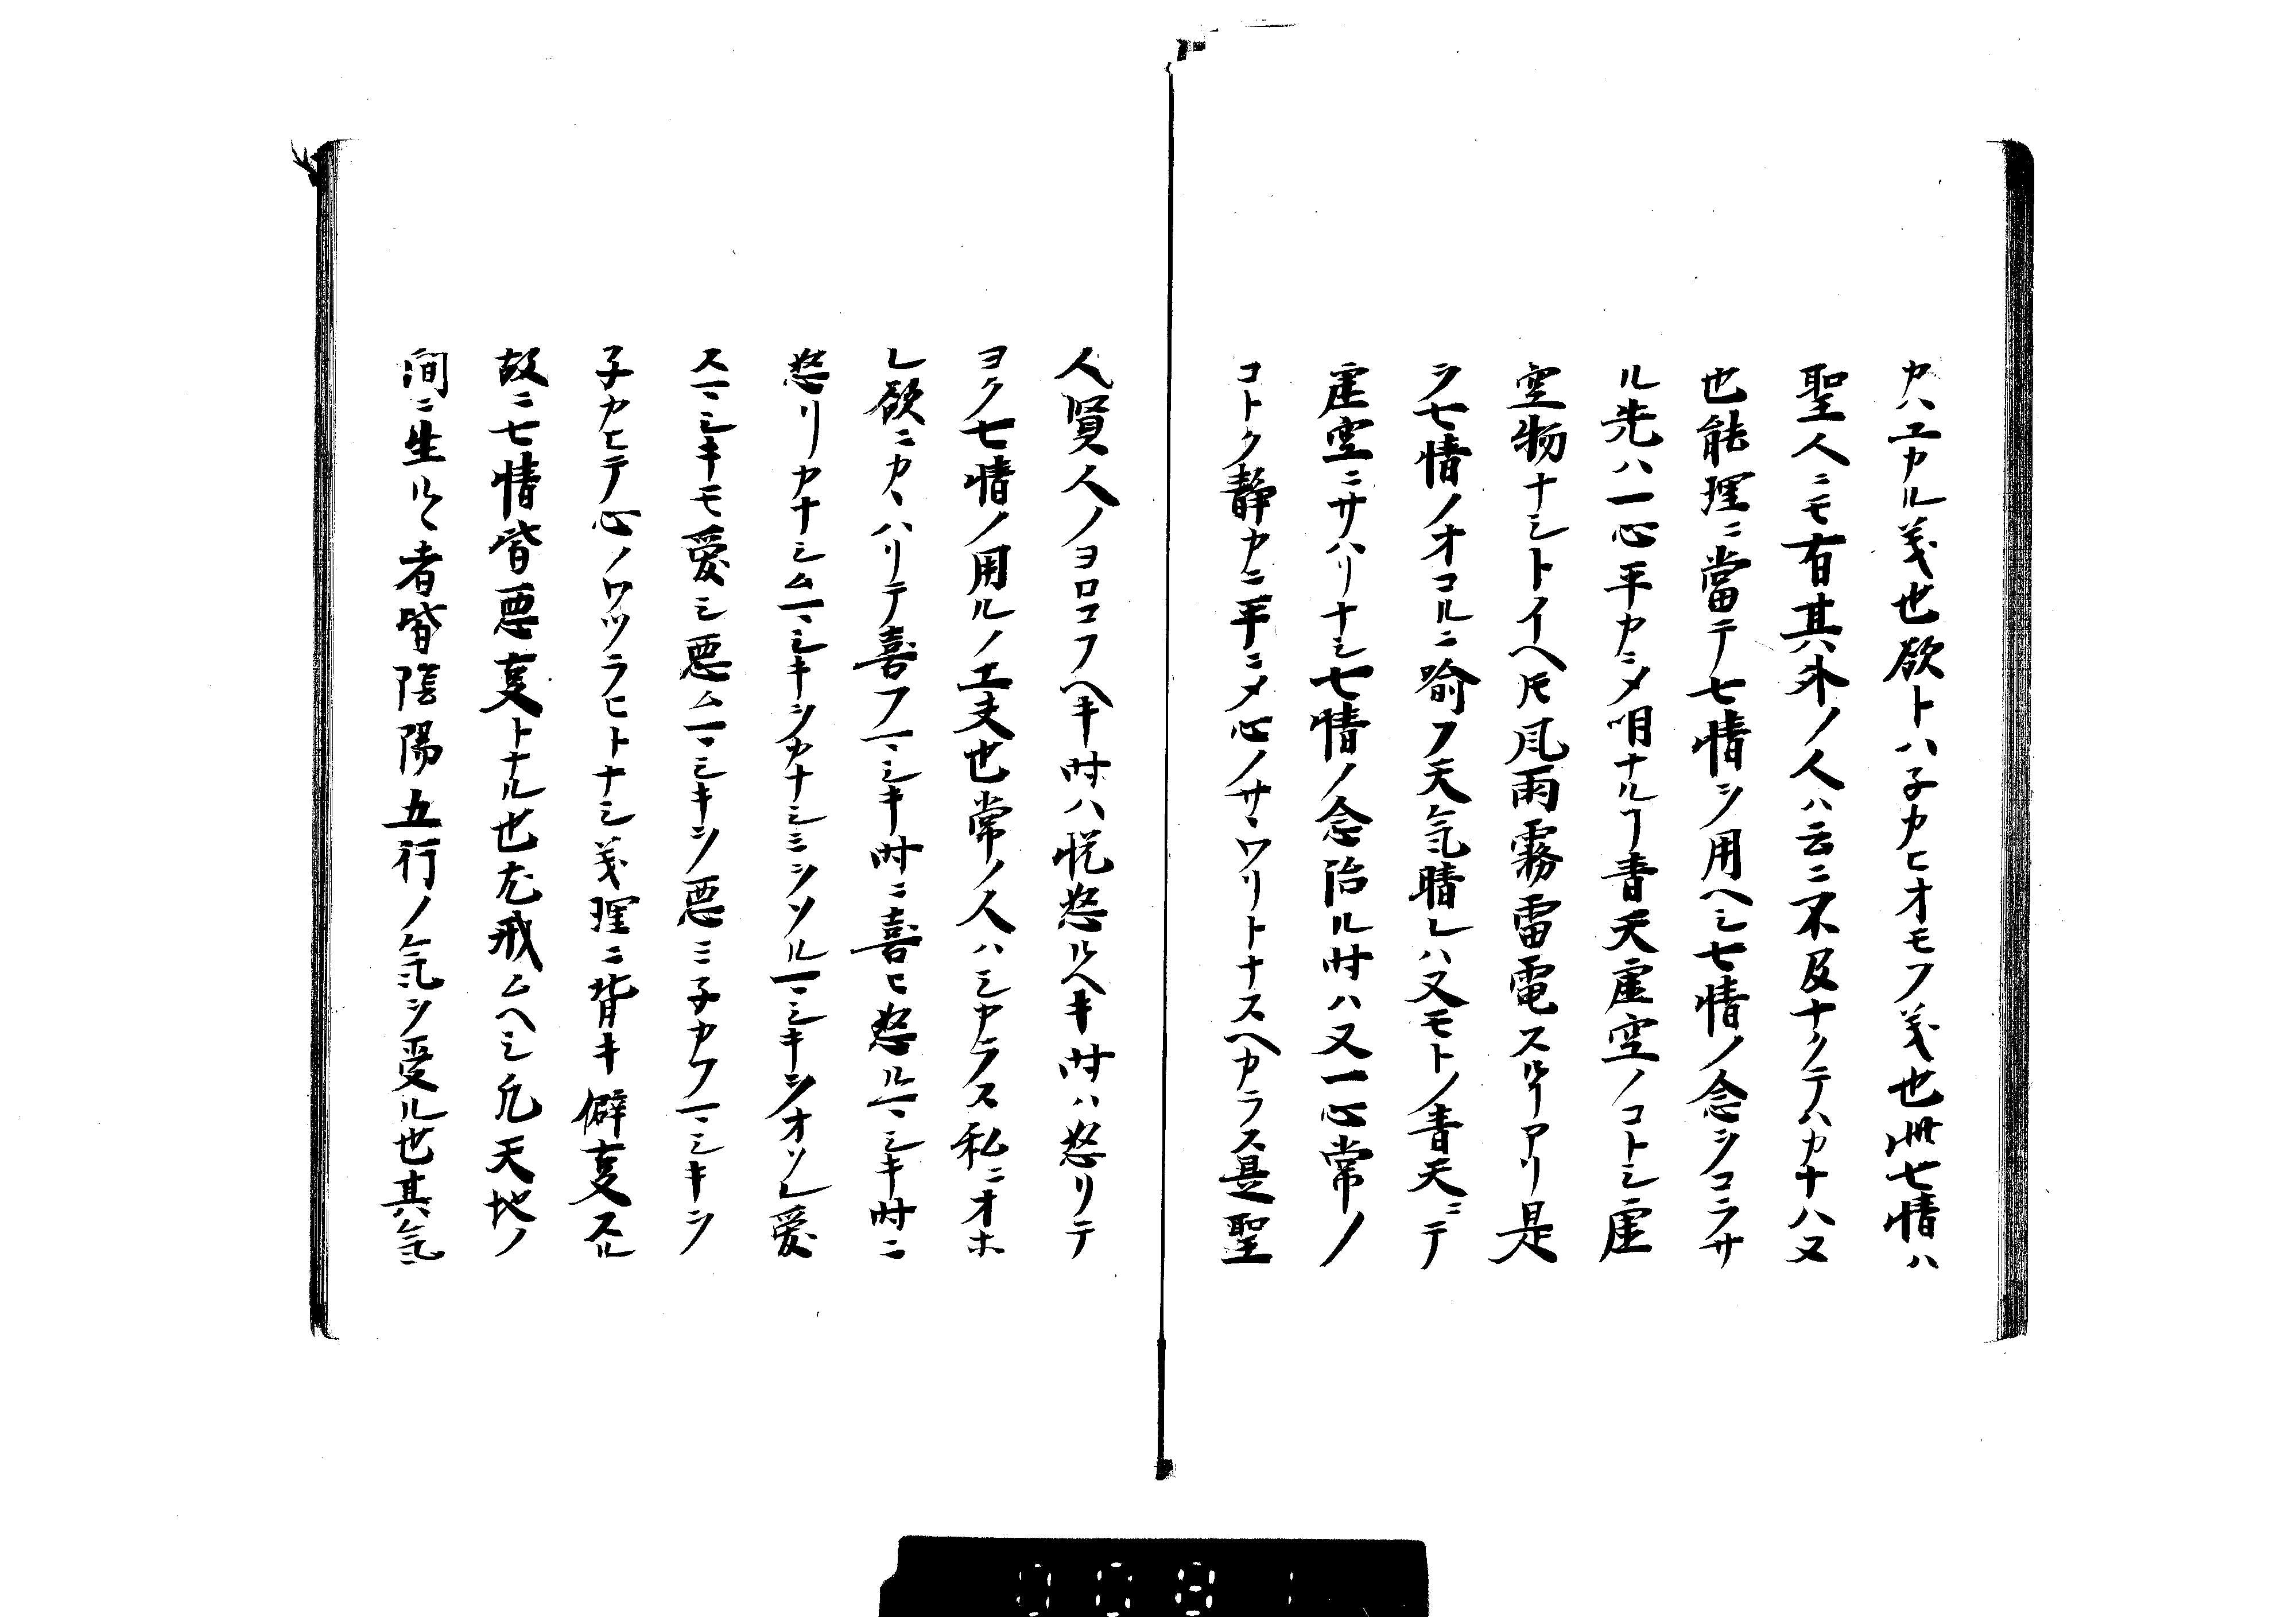 カハユカル義也欲トハ子カヒオモフ義也此七情ハ
聖人ニモ有其外ノ人ハ云ニ不及ナクテハカナハ又
也能理ニ當テ七情ヲ用ヘシ七情ノ念ヲコラサ
ル先ハ一心平カニメ明ナルヿ青天虚空ノコトシ虚
空物ナシトイヘ𪜈風雨霧雷電スルヿアリ是
ヲ七情ノオコルニ喩フ天氣晴レハ又モトノ青天ニテ
虚空ニサハリナシ七情ノ念治ル时ハ又一心常ノ
コトク静カニ平ニメ心ノサヽワリトナスヘカラス是聖
人賢人ノヨロコフヘキ时ハ悦怒ルヘキ时ハ怒リテ
ヨク七情ノ用ルノ工夫也常ノ人ハシカラス私ニオホ
レ欲ニカヽハリテ喜フマシキ时ニ喜ヒ怒ルマシキ时ニ
怒リカナシムマシキヲカナシミヲソルマシキヲオソレ愛
スマシキモ愛シ悪ムマシキヲ悪ミ子カフマシキヲ
子カヒテ心ノワツラヒトナシ義理ニ背キ僻叓スル
故ニ七情皆悪叓トナル也尤戒ムヘシ凢天地ノ
間ニ生ルヽ者皆陰陽五行ノ氣ヲ受ル也其氣
0081